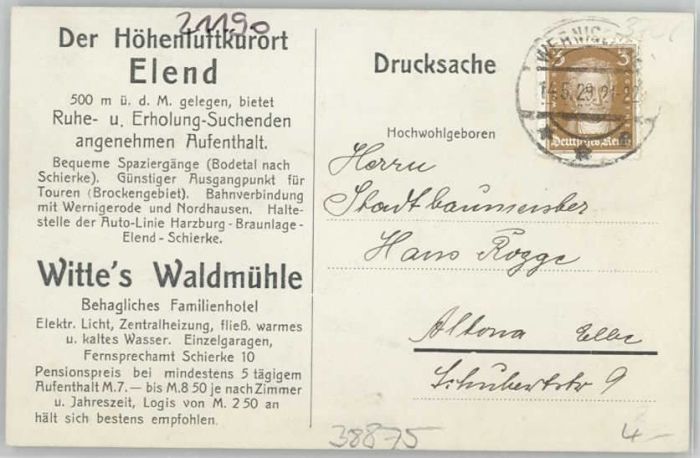 21190
Der Höhenluftkurort
Elend
500 m ü. d. M. gelegen, bietet
Ruhe- u. Erholung-Suchenden
angenehmen Aufenthalt.
Bequeme Spaziergänge (Bodetal nach
Schierke). Günstiger Ausgangpunkt für
Touren (Brockengebiet). Bahnverbindung
mit Wernigerode und Nordhausen. Halte-
stelle der Auto-Linie Harzburg-Braunlage-
Elend-Schierke.
Witte's Waldmühle
Behagliches Familienhotel
Elektr. Licht, Zentralheizung, fließ. warmes
u. kaltes Wasser. Einzelgaragen,
Fernsprechamt Schierke 10
Pensionspreis bei mindestens 5 tägigem
Aufenthalt M.7.— bis M.8 50 je nach Zimmer
u. Jahreszeit, Logis von M. 2 50 an
hält sich bestens empfohlen.
Drucksache
3 3
14.5.29.21-22
Deutsches Reich
Hochwohlgeboren
Herrn
Stadtbaumeister
Hans Rogge
Altona Elbe
Schubertstr 9
38875
4-